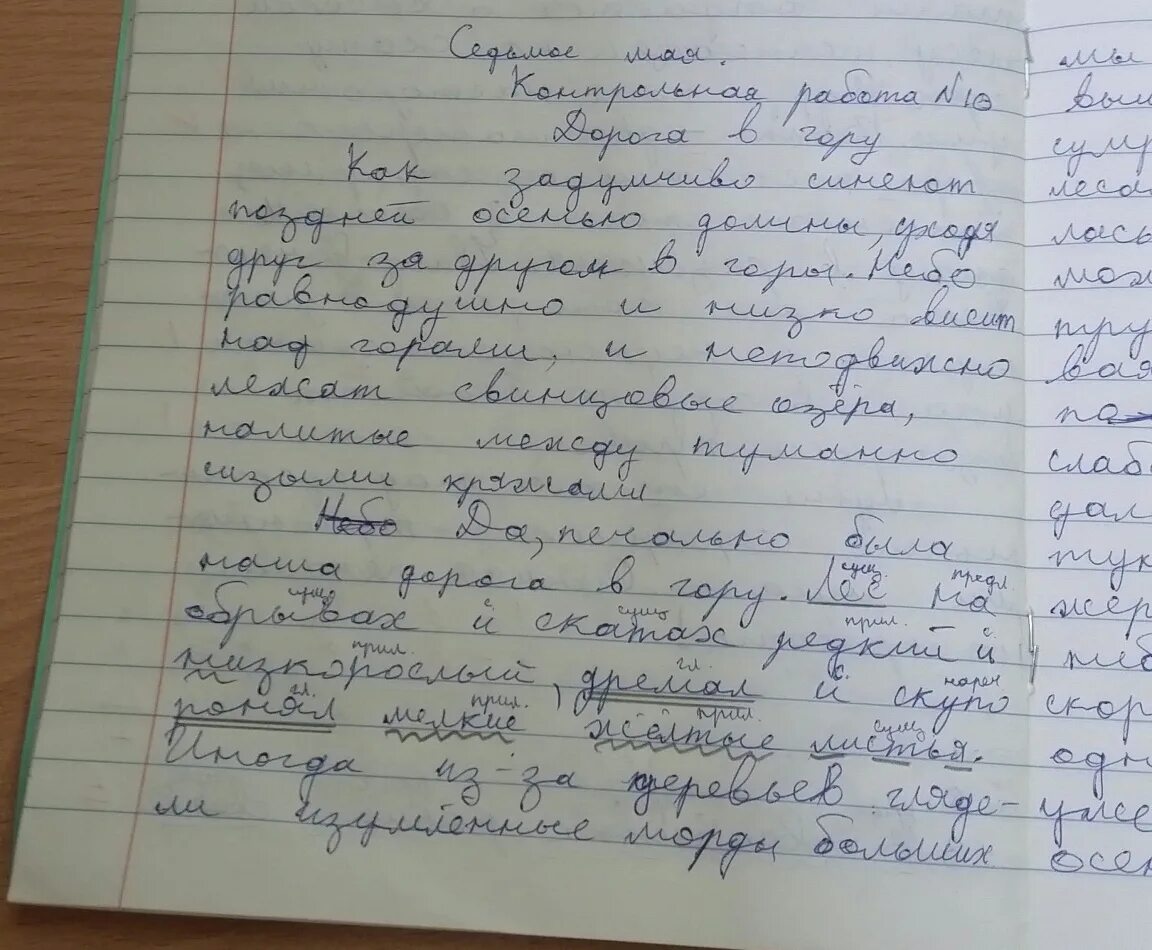 Седьмое мая.
Контрольная работа №10
Дорога в гору
Как задумчиво синеют
поздней осенью долины, уходя
друг за другом в горы. Небо
равнодушно и низко висит
над горами, и неподвижно
лежат свинцовые озёра,
налитые между туманно
сизыми кряжами
Небо Да, печально была
сущ. предл.
наша дорога в гору. Лес на
сущ сущ прил. с.
обрывах и скатах редкий и
прил. гл. с. нареч
низкорослый, дремал и скупо
гл. прил. прил. сущ
ронял мелкие жёлтые листья.
Иногда из-за деревьев гляде-
ли изумлённые морды больших
мы
выш
сумр
леса
лась
мож
тру
вая
по
слаб
дал
тук
жёр
неб
скор
одн
уже
осен